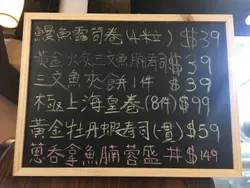 鰻魚壽司卷(4粒) $39
黃金火炙三文魚腩壽司 $39
三文魚夾餅1件 $39
極上海皇卷(8件) $99
黃金牡丹蝦壽司(一貫) $59
葱吞拿魚腩蓉盛丼 $149